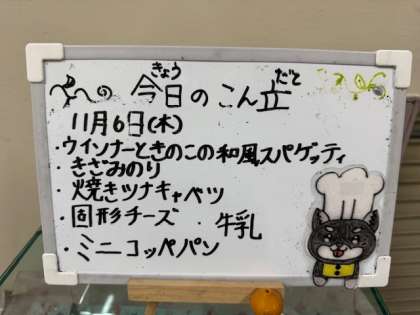 今日のこん立
11月6日(木)
・ウインナーときのこの和風スパゲッティ
・きざみのり
・焼きツナキャベツ
・固形チーズ ・牛乳
・ミニコッペパン